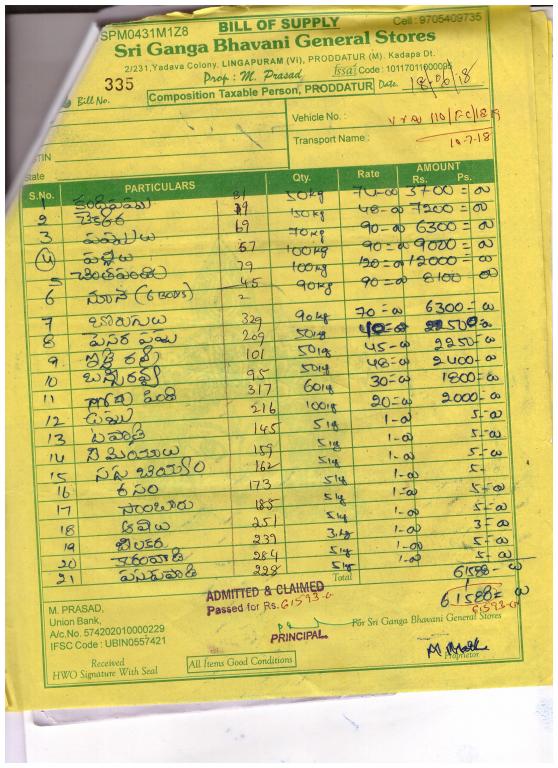 SPM0431M1Z8 BILL OF SUPPLY Cell : 9705409735
Sri Ganga Bhavani General Stores
2/231, Yadava Colony, LINGAPURAM (Vi), PRODDATUR (M). Kadapa Dt.
335 Prop : M. Prasad Issai Code : 10117011000095
Bill No. Composition Taxable Person, PRODDATUR Date. 18/06/18
Vehicle No. :
Transport Name : 10-7-18
TIN
State
S.No. PARTICULARS Qty. Rate AMOUNT
Rs. Ps.
1 కందిపప్పు 81 50kg 74-00 3700=00
2 చక్కెర 150kg 48-00 7200=00
3 69 70kg 90-00 6300=00
4 67 100kg 90=00 9000=00
5 చింతపండు 79 100kg 120=00 12000=00
6 నూనె 45 90kg 90=00 8100=00
7 బొరుగులు 329 90kg 70=00 6300=00
8 పెసర పప్పు 209 50kg 2250=00
9 ఇడ్లీ రవ్వ 101 50kg 45-00 2250-00
10 95 50kg 48-00 2400-00
11 గోధుమ పిండి 317 60kg 30=00 1800=00
12 ఉప్పు 216 100kg 20=00 2000=00
13 145 5kg 1-00 5-00
14 159 5kg 1-00 5-00
15 162 5kg 1-00 5-00
16 రసం 173 5kg 1-00 5-
17 సాంబారు 185 5kg 1-00 5-00
18 ఆవాలు 251 5kg 1-00 5-00
19 జీలకర 239 3kg 1-00 3-00
20 284 5kg 1-00 5-00
21 228 5kg 1-00 5-00
Total 61588-00
ADMITTED & CLAIMED 61588=00
Passed for Rs. 61593-00 61593-00
M. PRASAD,
Union Bank,
A/c.No. 574202010000229
IFSC Code : UBIN0557421
PRINCIPAL. For Sri Ganga Bhavani General Stores
Received
HWO Signature With Seal All Items Good Conditions Proprietor